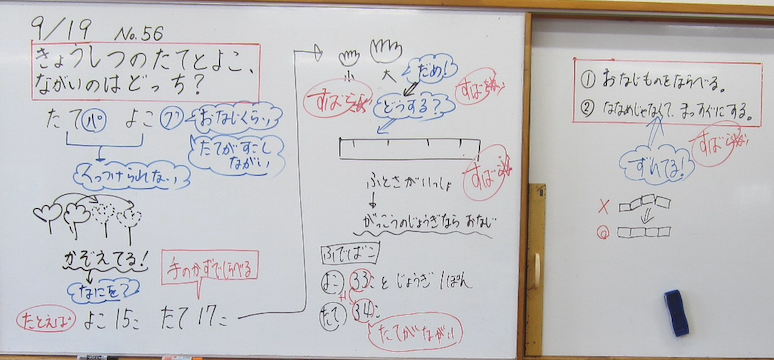 9/19 No.56
きょうしつのたてとよこ、
ながいのはどっち?
たて パ よこ グ
おなじくらい
たてがすこし
ながい
くっつけられない
かぞえてる!
なにを?
手のかずでくらべる
たとえば よこ 15こ たて 17こ
小 大
だめ!
どうする?
すばらしい
すばらしい
すばらしい
ふとさがいっしょ
がっこうのじょうぎなら おなじ
ふでばこ
よこ 33こ と じょうぎ 1ぽん
+1
たて 34こ
たてがながい!
① おなじものをならべる。
② ななめじゃなくて、まっすぐにする。
ずれてる!
すばらしい
×
◎